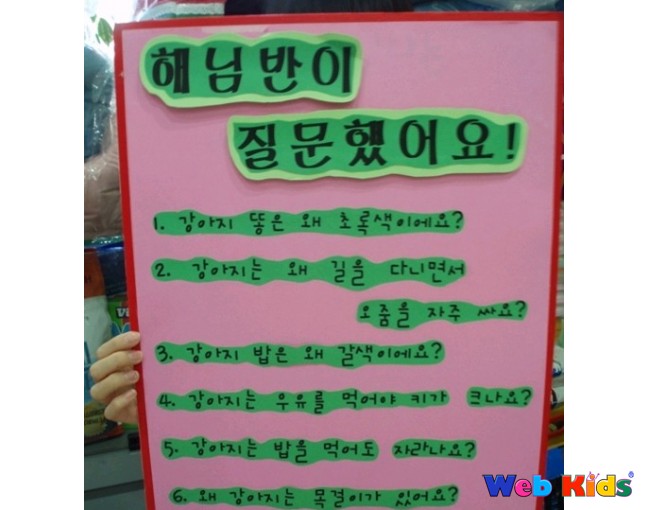 해님반이
질문했어요!
1. 강아지 똥은 왜 초록색이에요?
2. 강아지는 왜 길을 다니면서
오줌을 자주 싸요?
3. 강아지 밥은 왜 갈색이에요?
4. 강아지는 우유를 먹어야 키가 크나요?
5. 강아지는 밥을 먹어도 자라나요?
6. 왜 강아지는 목걸이가 있어요?
Web Kids